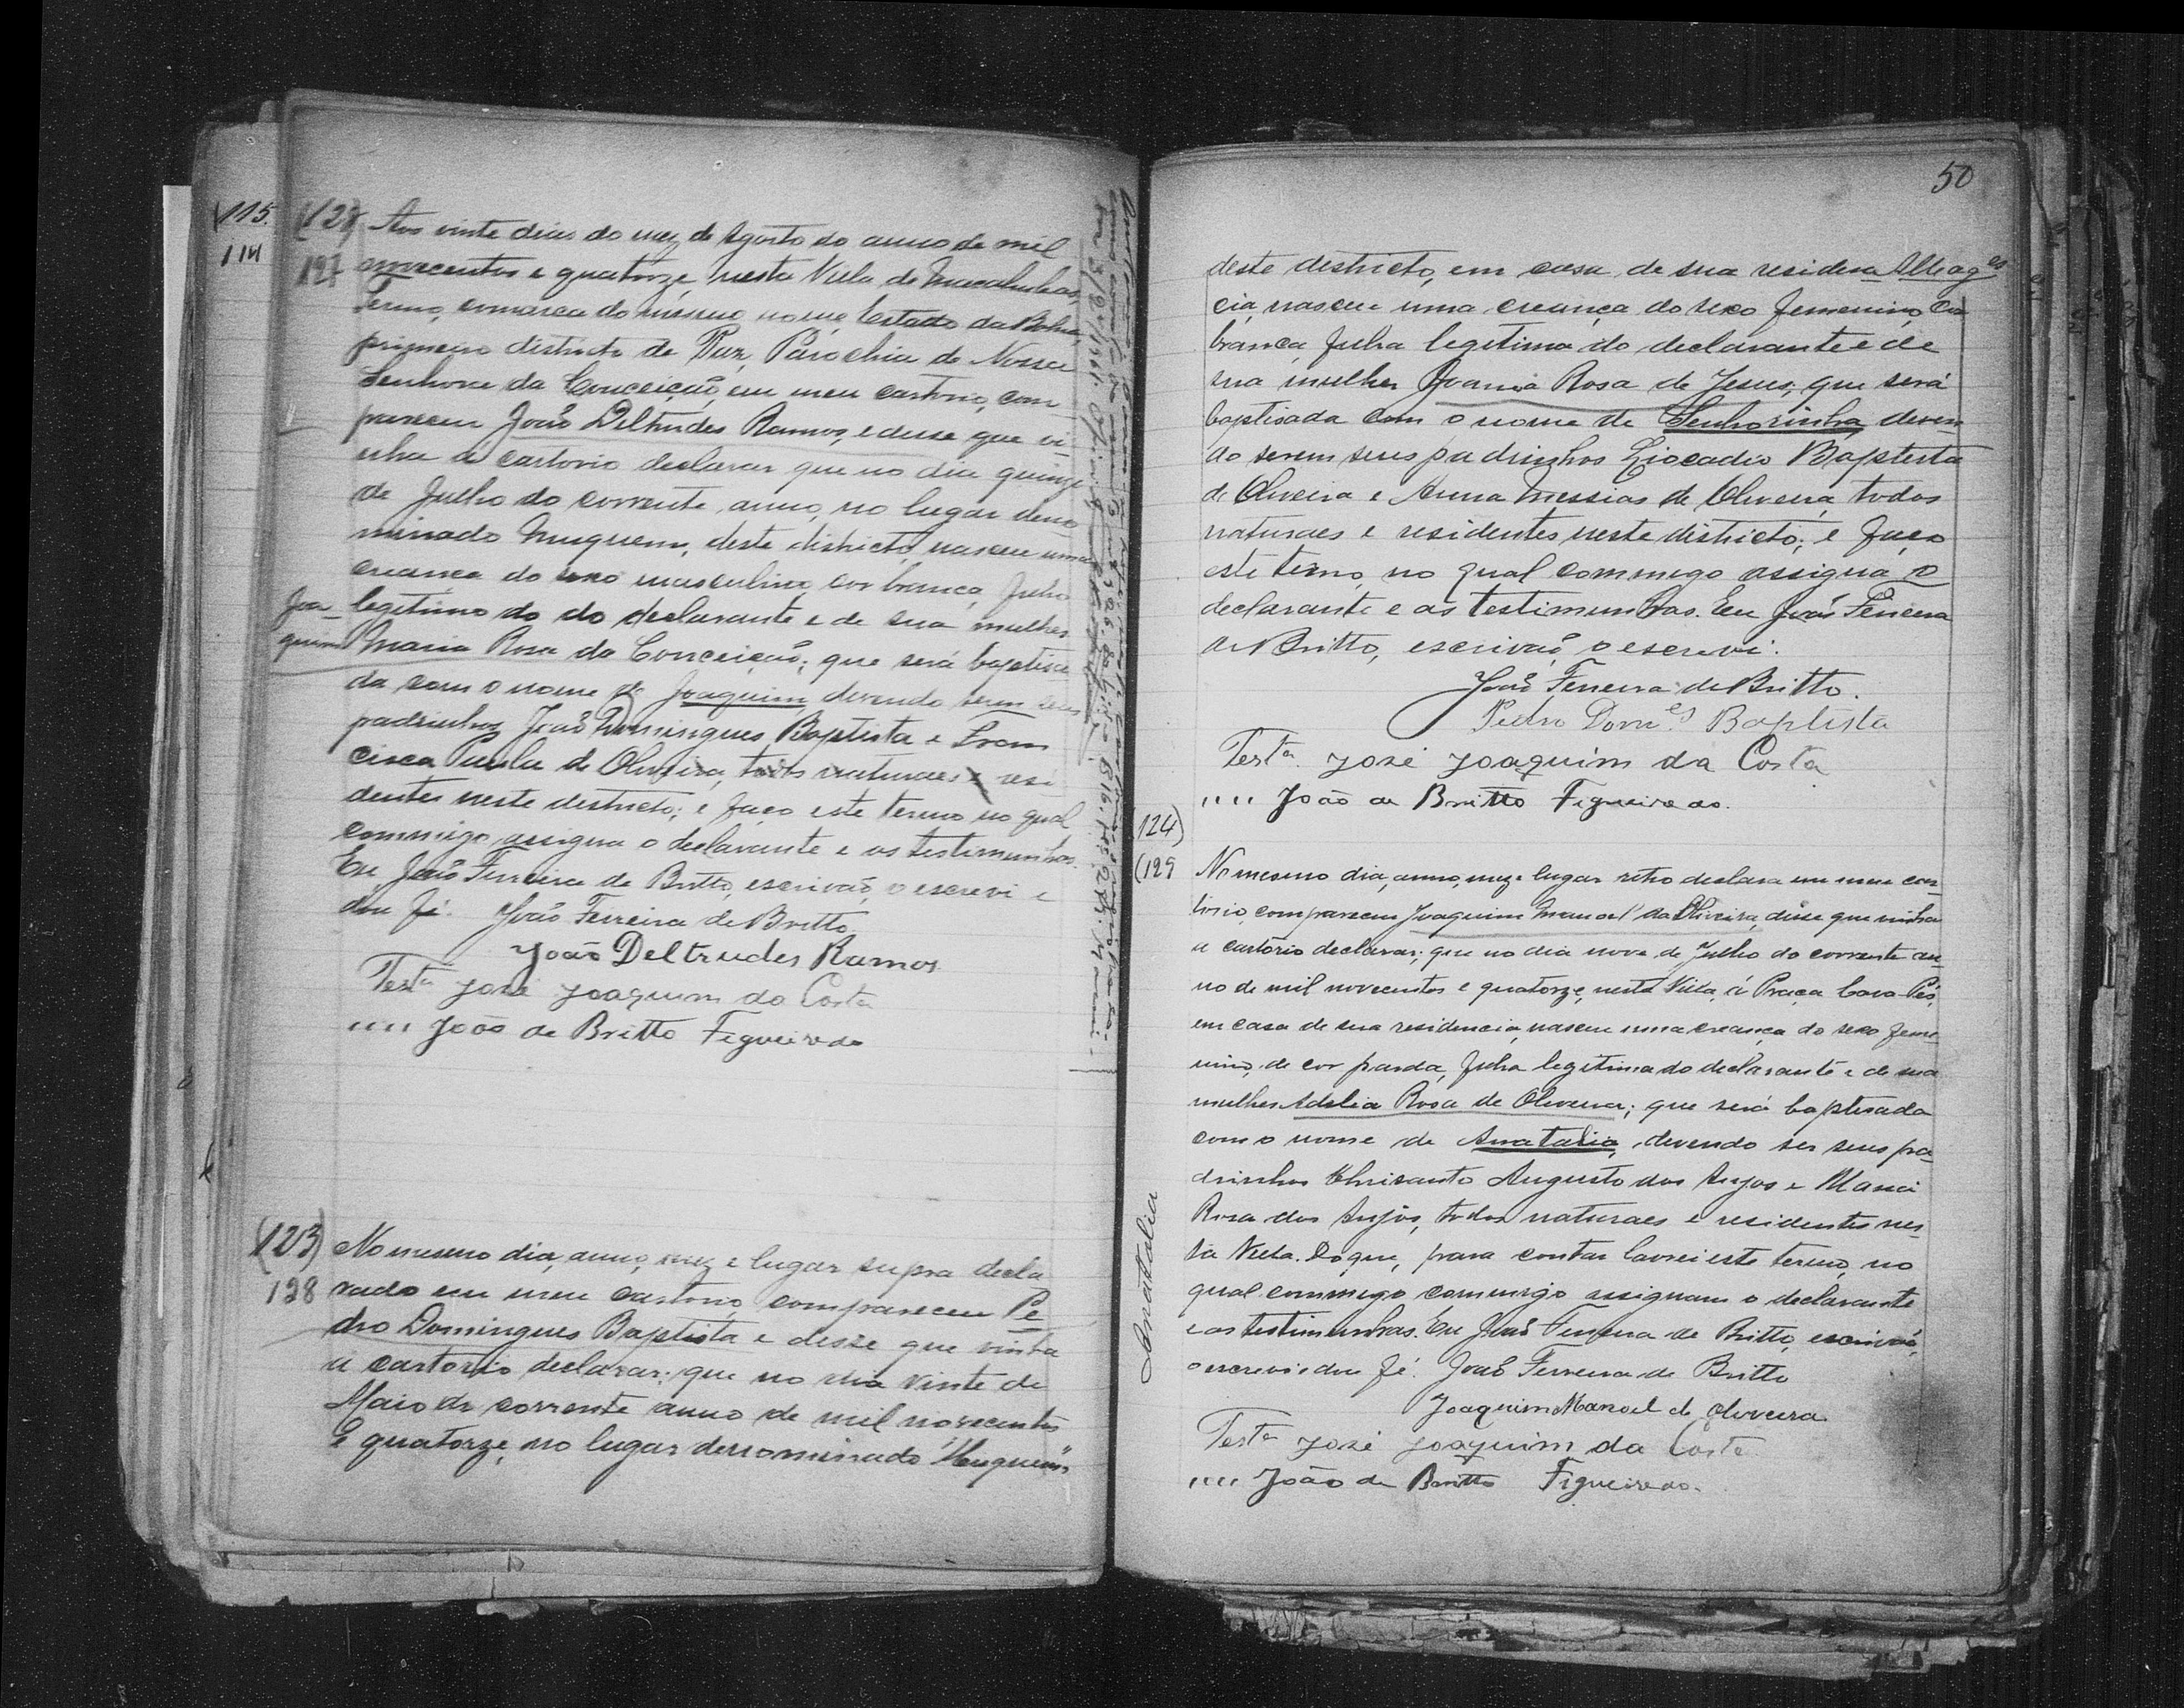 (115.
114
(122)
127
Aos vinte dias do mez de Agosto do anno de mil
novecentos e quatorze, nesta Villa de Macahubas,
Termo, comarca do mesmo nome, Estado da Bahia,
primeiro districto de Paz, Parochia de Nossa
Senhora da Conceição, em meu cartorio, com
pareceu João Deltrudes Ramos, e disse que vi-
nha a cartorio declarar que no dia quinze
de Julho do corrente anno, no lugar deno
minado Muquem, deste districto, nasceu uma
creança do sexo masculino, cor branca, filho
legitimo do do declarante e de sua mulher
Joa-
quim
Maria Rosa da Conceição; que será baptisa
da com o nome de Joaquim, devendo serem seus
padrinhos João Domingues Baptista e Fran
cisca Paula de Oliveira, todos naturaes e resi
dentes neste districto; e faço este termo no qual
commigo assigna o declarante e as testimunhas.
Eu, João Ferreira de Britto, escrivão, o escrevi e
dou fé. João Ferreira de Britto.
João Deltrudes Ramos
Testa José Joaquim da Costa
"" João de Britto Figueiredo
(123)
128
No mesmo dia, anno, mez e lugar supra decla
rado em meu cartorio, compareceu Pe-
dro Domingues Baptista e desse que vinha
a cartorio declarar; que no dia vinte de
Maio do corrente anno de mil novecentos
e quatorze, no lugar denominado "Muquem"
50
deste districto, em casa de sua residen
cia, nasceu uma creança do sexo femenino, cor
branca, filha legitima do declarante e de
sua mulher Joania Rosa de Jesus; que será
baptisada com o nome de Senhorinha, deven
do serem seus padrinhos Liocadio Baptista
de Oliveira e Anna Messias de Oliveira, todos
naturaes e residentes neste districto; e faço
este termo, no qual commigo assigna o
declarante e as testimunhas. Eu João Ferreira
de Britto, escrivão o escrevi.
João Ferreira de Britto.
Pedro Domes Baptista
Testa José Joaquim da Costa
"" João de Britto Figueiredo.
124)
(129
No mesmo dia, anno, mez e lugar retro declara em meu car-
torio, compareceu Joaquim Manoel da Oliveira, disse que vinha
a cartorio declarar; que no dia nove de Julho do corrente an-
no de mil novecentos e quatorze, nesta Villa, á Praça Lava-Pés,
em casa de sua residencia, nasceu uma creança do sexo feme
nino, de cor parda, filha legitima do declarante e de sua
mulher Adelia Rosa de Oliveira; que será baptisada
com o nome de Anatalia, devendo ser seus pa-
drinhos Chrisanto Augusto dos Anjos e Maria
Rosa dos Anjos, todos naturaes e residentes nes-
ta Villa. Do que, para contar lavrei este termo, no
qual commigo commigo assignam o declarante
e as testimunhas. Eu João Ferreira de Britto, escrivão,
o escrevi e dou fé. João Ferreira de Britto
Joaquim Manoel de Oliveira
Testa José Joaquim da Costa
"" João de Britto Figueiredo.
Anatalia